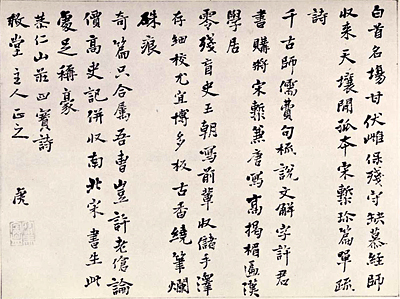 白首名場甘伏雌保殘守缺慕經師
收來天壤間孤本宋槧珍篇單疏
詩
千古師儒費句稽說文解字許君
書購將宋槧兼唐寫高揭楣匾漢
學居
零殘盲史王朝寫前輩收儲手澤
存細校尤宜博多板古香繞筆爛
硃痕
奇篇只合屬吾曹豈許老傖論
價高史記併收南北宋書生此
處足稱豪
恭仁山莊四寶詩
堂主人正之 虎